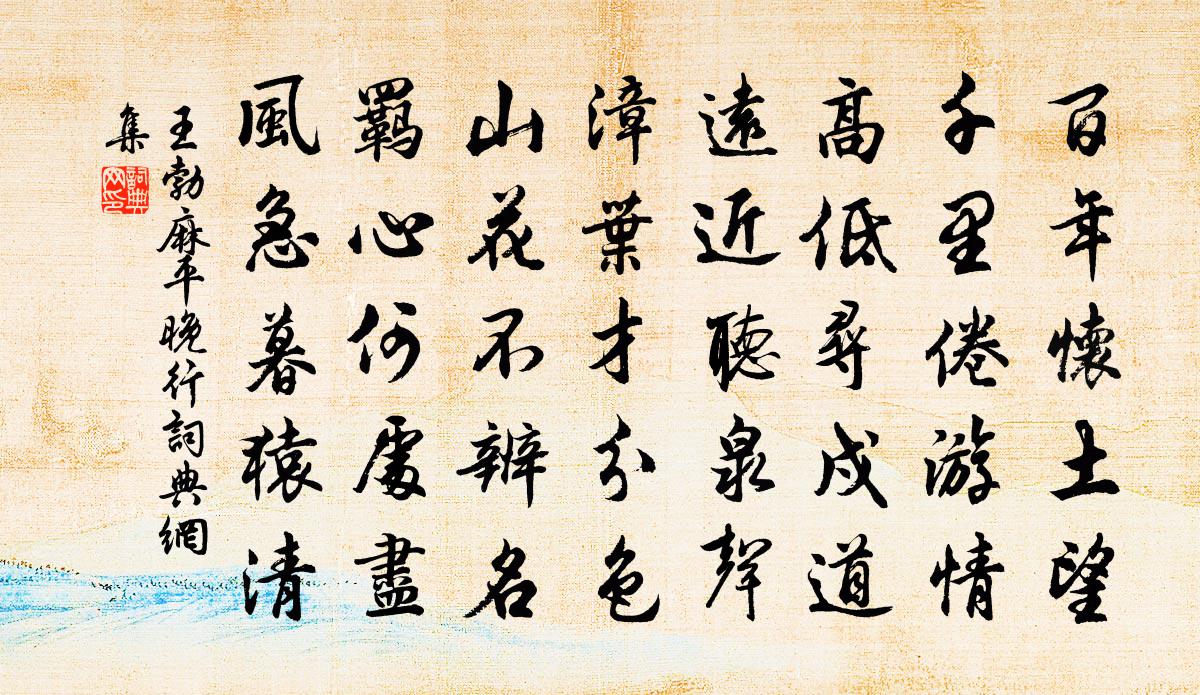 百年懷土望
千里倦游情
高低尋戍道
遠近聽泉聲
漳葉才分色
山花不辨名
羈心何處盡
風急暮猿清
王勃麻平晚行詞典網
集
詞典
网印